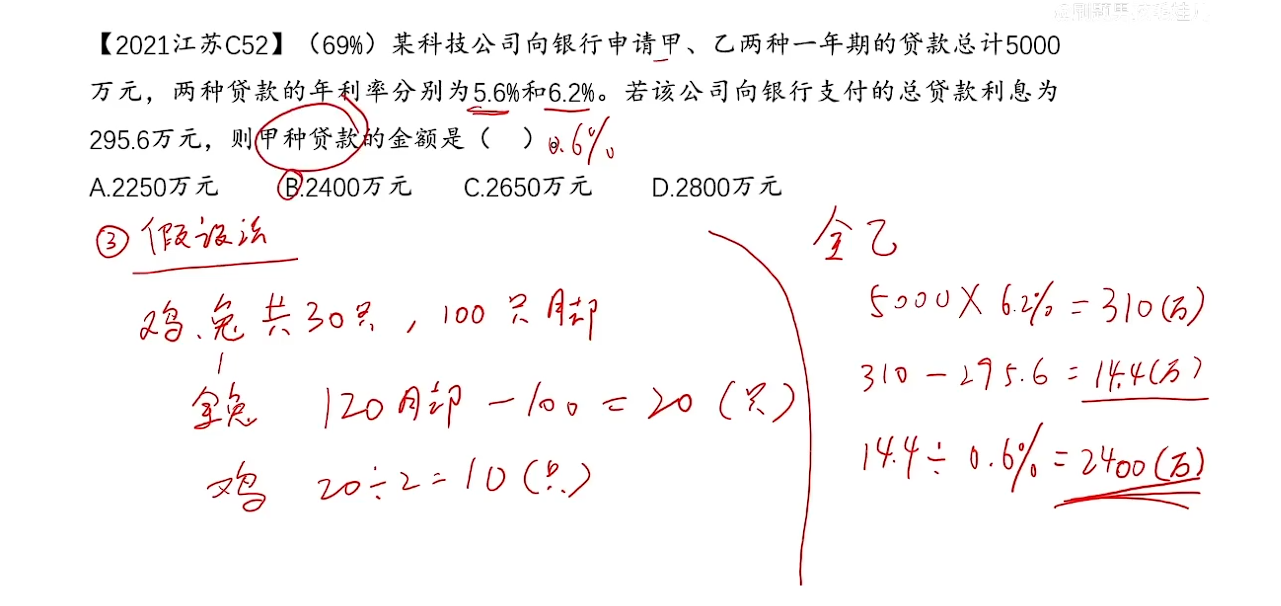 【2021江苏C52】（69%）某科技公司向银行申请甲、乙两种一年期的贷款总计5000
万元，两种贷款的年利率分别为5.6%和6.2%。若该公司向银行支付的总贷款利息为
295.6万元，则甲种贷款的金额是（ ）。
0.6%
A.2250万元 B.2400万元 C.2650万元 D.2800万元
③ 假设法
鸡、兔共30只，100只脚
全兔 120脚－100＝20（只）
鸡 20÷2＝10（只）
全乙
5000×6.2%＝310（万）
310－295.6＝14.4（万）
14.4÷0.6%＝2400（万）